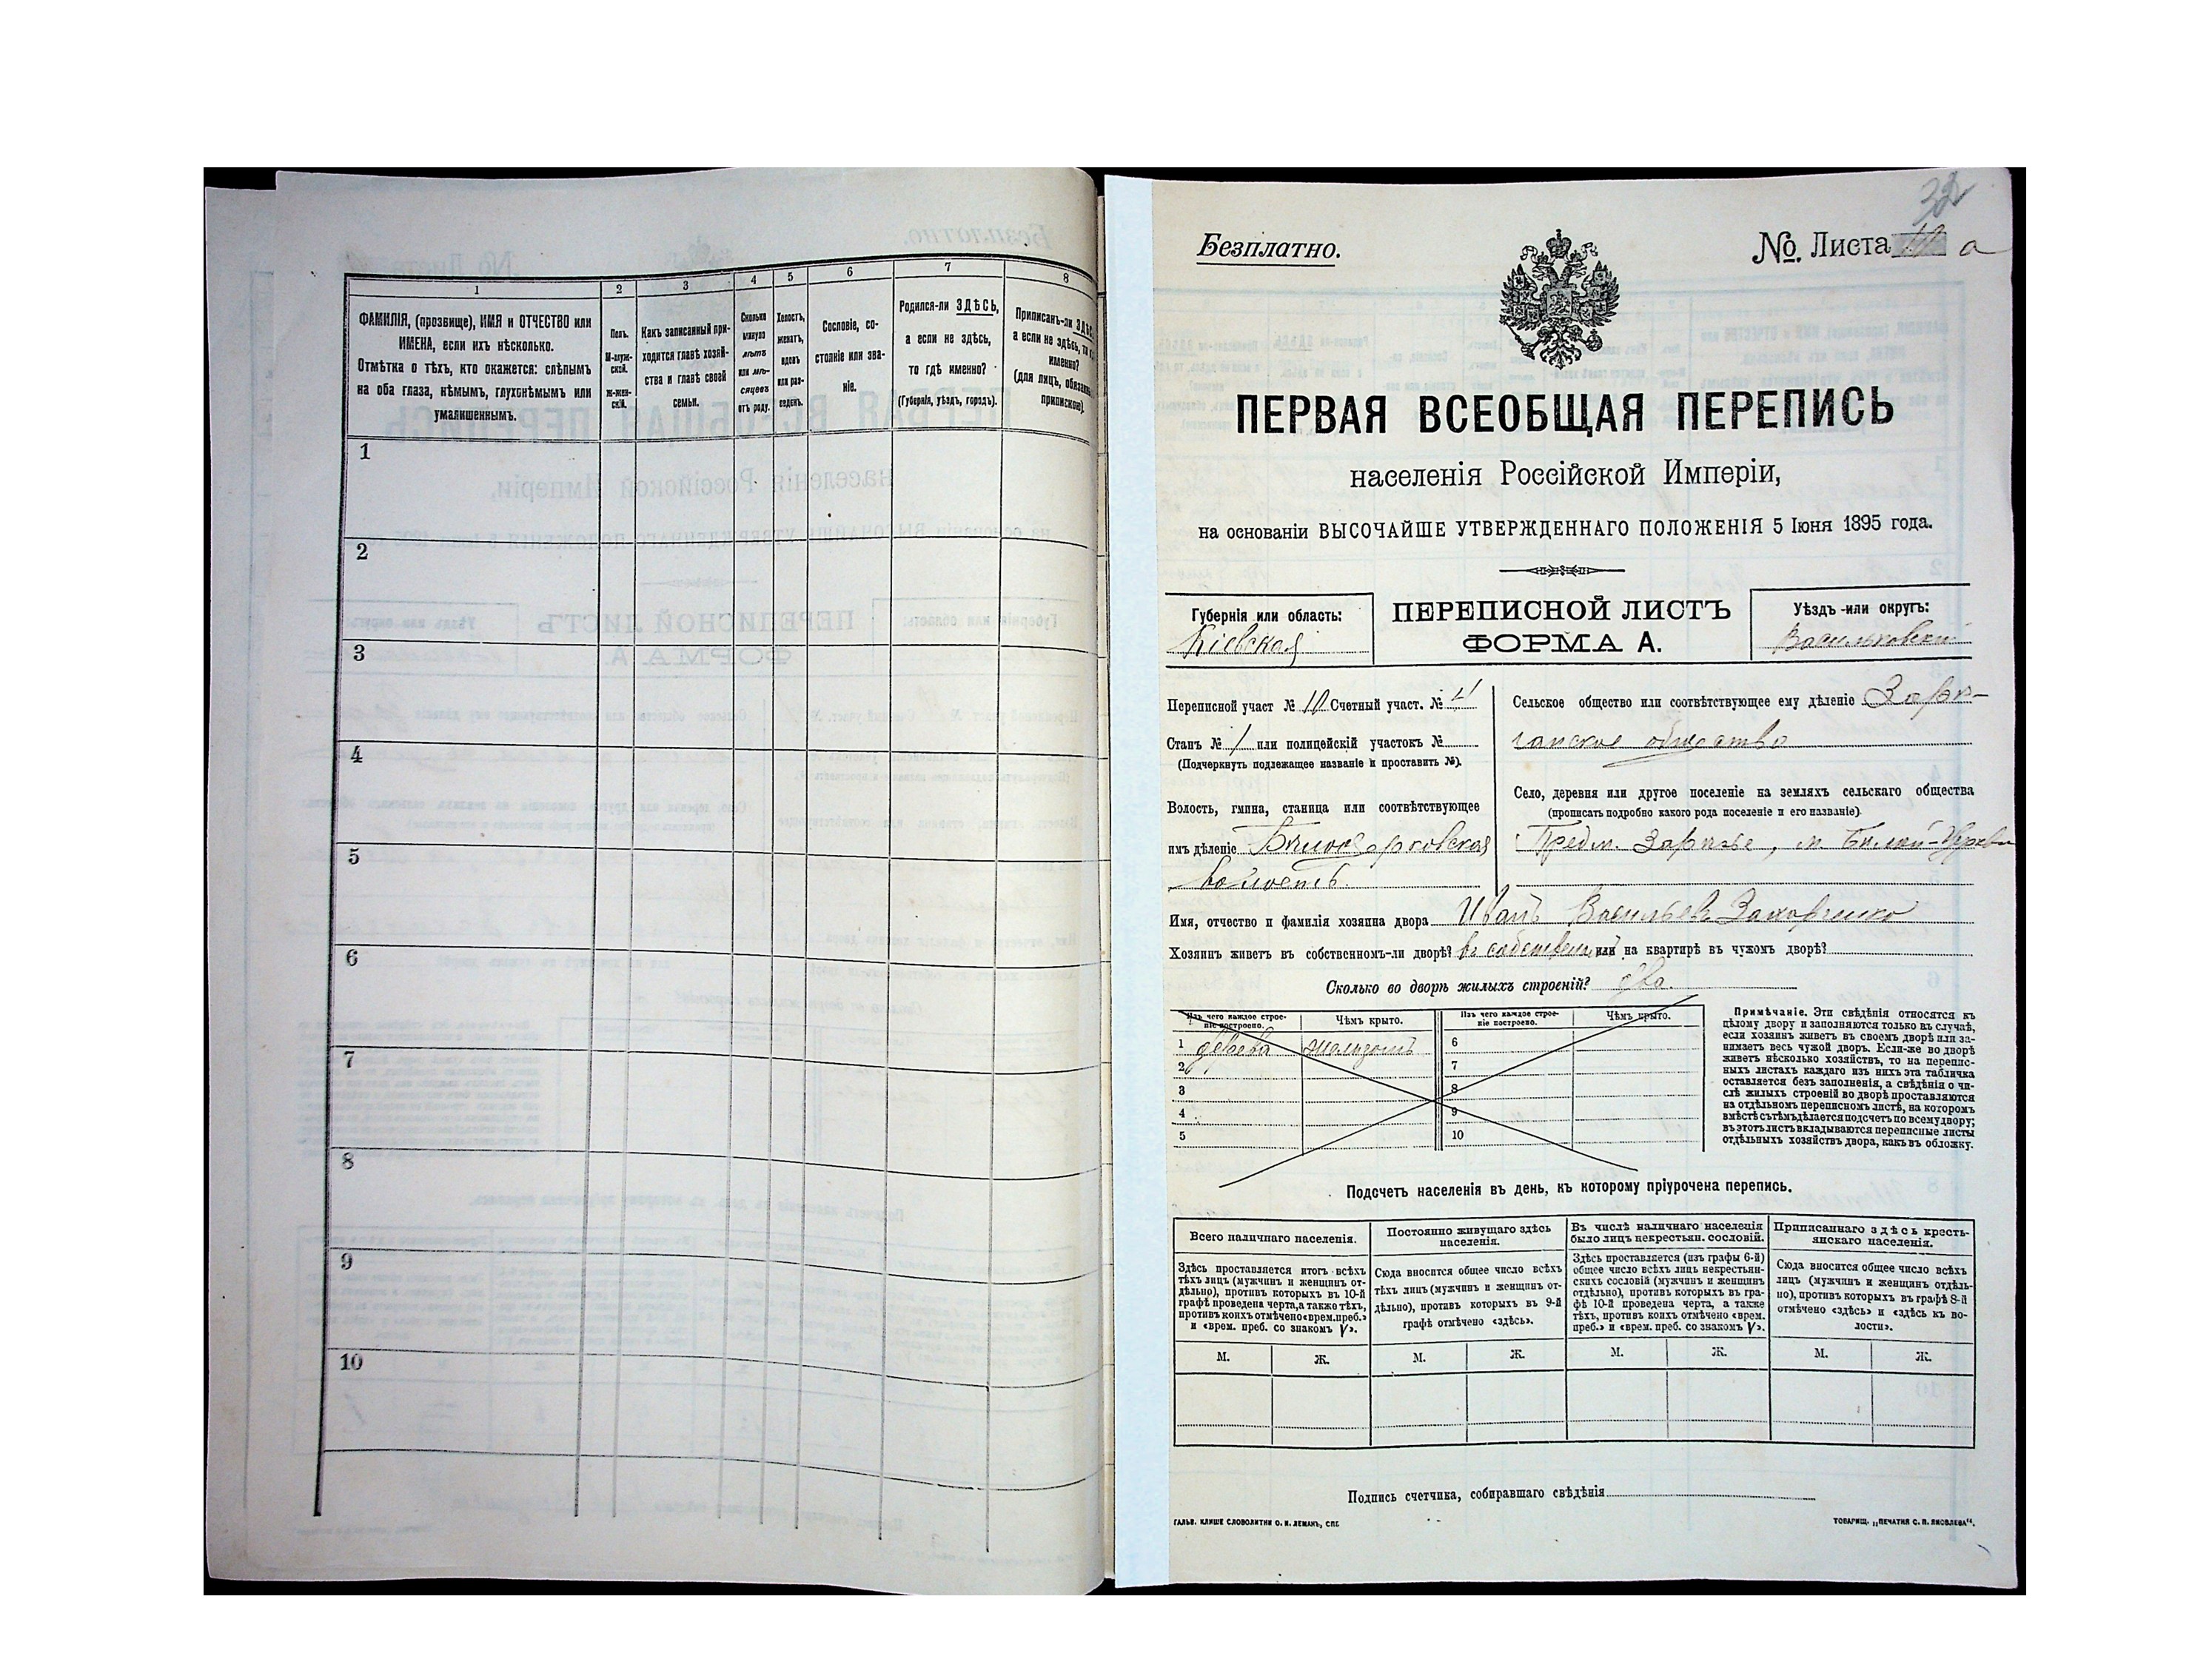 1
2
3
4
5
6
7
8
ФАМИЛІЯ, (прозвище), ИМЯ и ОТЧЕСТВО или
ИМЕНА, если ихъ нѣсколько.
Отмѣтка о тѣхъ, кто окажется: слѣпымъ
на оба глаза, нѣмымъ, глухонѣмымъ или
умалишеннымъ.
Полъ.
М-муж-
ской.
Ж-жен-
скій.
Какъ записанный при-
ходится главѣ хозяй-
ства и главѣ своей
семьи.
Сколько
минуло
лѣтъ
или мѣ-
сяцевъ
отъ роду.
Холостъ,
женатъ,
вдовъ
или раз-
веденъ.
Сословіе, со-
стояніе или зва-
ніе.
Родился-ли ЗДѢСЬ,
а если не здѣсь,
то гдѣ именно?
(Губернія, уѣздъ, городъ).
Приписанъ-ли
а если не здѣсь,
именно?
(для лицъ,
припискою).
1
2
3
4
5
6
7
8
9
10
32
Безплатно.
№. Листа а
ПЕРВАЯ ВСЕОБЩАЯ ПЕРЕПИСЬ
населенія Россійской Имперіи,
на основаніи ВЫСОЧАЙШЕ УТВЕРЖДЕННАГО ПОЛОЖЕНІЯ 5 Іюня 1895 года.
Губернія или область:
Кіевская
ПЕРЕПИСНОЙ ЛИСТЪ
ФОРМА А.
Уѣздъ или округъ:
Васильковскій
Переписной участ № 10 Счетный участ. №
Станъ № 1 или полицейскій участокъ №
(Подчеркнуть подлежащее названіе и проставить №).
Волость, гмина, станица или соотвѣтствующее
имъ дѣленіе Бѣлоцерковская
волость.
Сельское общество или соотвѣтствующее ему дѣленіе
общество
Село, деревня или другое поселеніе на земляхъ сельскаго общества
(прописать подробно какого рода поселеніе и его названіе)
Предм. Зарѣчье, м. Бѣлой-Церкви
Имя, отчество и фамилія хозяина двора Иванъ Васильевъ Захарченко
Хозяинъ живетъ въ собственномъ-ли дворѣ? въ собственномъ или на квартирѣ въ чужомъ дворѣ?
Сколько во дворѣ жилыхъ строеній? два.
Изъ чего каждое строе-
ніе построено.
Чѣмъ крыто.
Изъ чего каждое строе-
ніе построено.
Чѣмъ крыто.
1 дерева желѣзомъ
2
3
4
5
6
7
8
9
10
Примѣчаніе. Эти свѣдѣнія относятся къ
цѣлому двору и заполняются только въ случаѣ,
если хозяинъ живетъ въ своемъ дворѣ или за-
нимаетъ весь чужой дворъ. Если-же во дворѣ
живетъ нѣсколько хозяйствъ, то на перепис-
ныхъ листахъ каждаго изъ нихъ эта табличка
оставляется безъ заполненія, а свѣдѣнія о чи-
слѣ жилыхъ строеній во дворѣ проставляются
на отдѣльномъ переписномъ листѣ, на которомъ
вмѣстѣ съ тѣмъ дѣлается подсчетъ по всему двору;
въ этотъ листъ вкладываются переписные листы
отдѣльныхъ хозяйствъ двора, какъ въ обложку.
Подсчетъ населенія въ день, къ которому пріурочена перепись.
Всего наличнаго населенія.
Здѣсь проставляется итогъ всѣхъ
тѣхъ лицъ (мужчинъ и женщинъ от-
дѣльно), противъ которыхъ въ 10-й
графѣ проведена черта, а также тѣхъ,
противъ коихъ отмѣчено «врем. преб.»
и «врем. преб. со знакомъ V».
Постоянно живущаго здѣсь
населенія.
Сюда вносится общее число всѣхъ
тѣхъ лицъ (мужчинъ и женщинъ от-
дѣльно), противъ которыхъ въ 9-й
графѣ отмѣчено «здѣсь».
Въ числѣ наличнаго населенія
было лицъ некрестьян. сословій.
Здѣсь проставляется (изъ графы 6-й)
общее число всѣхъ лицъ некрестьян-
скихъ сословій (мужчинъ и женщинъ
отдѣльно), противъ которыхъ въ гра-
фѣ 10-й проведена черта, а также
тѣхъ, противъ коихъ отмѣчено «врем.
преб.» и «врем. преб. со знакомъ V».
Приписаннаго здѣсь кресть-
янскаго населенія.
Сюда вносится общее число всѣхъ
лицъ (мужчинъ и женщинъ отдѣль-
но), противъ которыхъ въ графѣ 8-й
отмѣчено «здѣсь» и «здѣсь къ во-
лости».
М. Ж. М. Ж. М. Ж. М. Ж.
Подпись счетчика, собиравшаго свѣдѣнія
ГАЛЬВ. КЛИШЕ СЛОВОЛИТНИ О. И. ЛЕМАНЪ, СПБ.
ТОВАРИЩ. „ПЕЧАТНЯ С. П. ЯКОВЛЕВА".